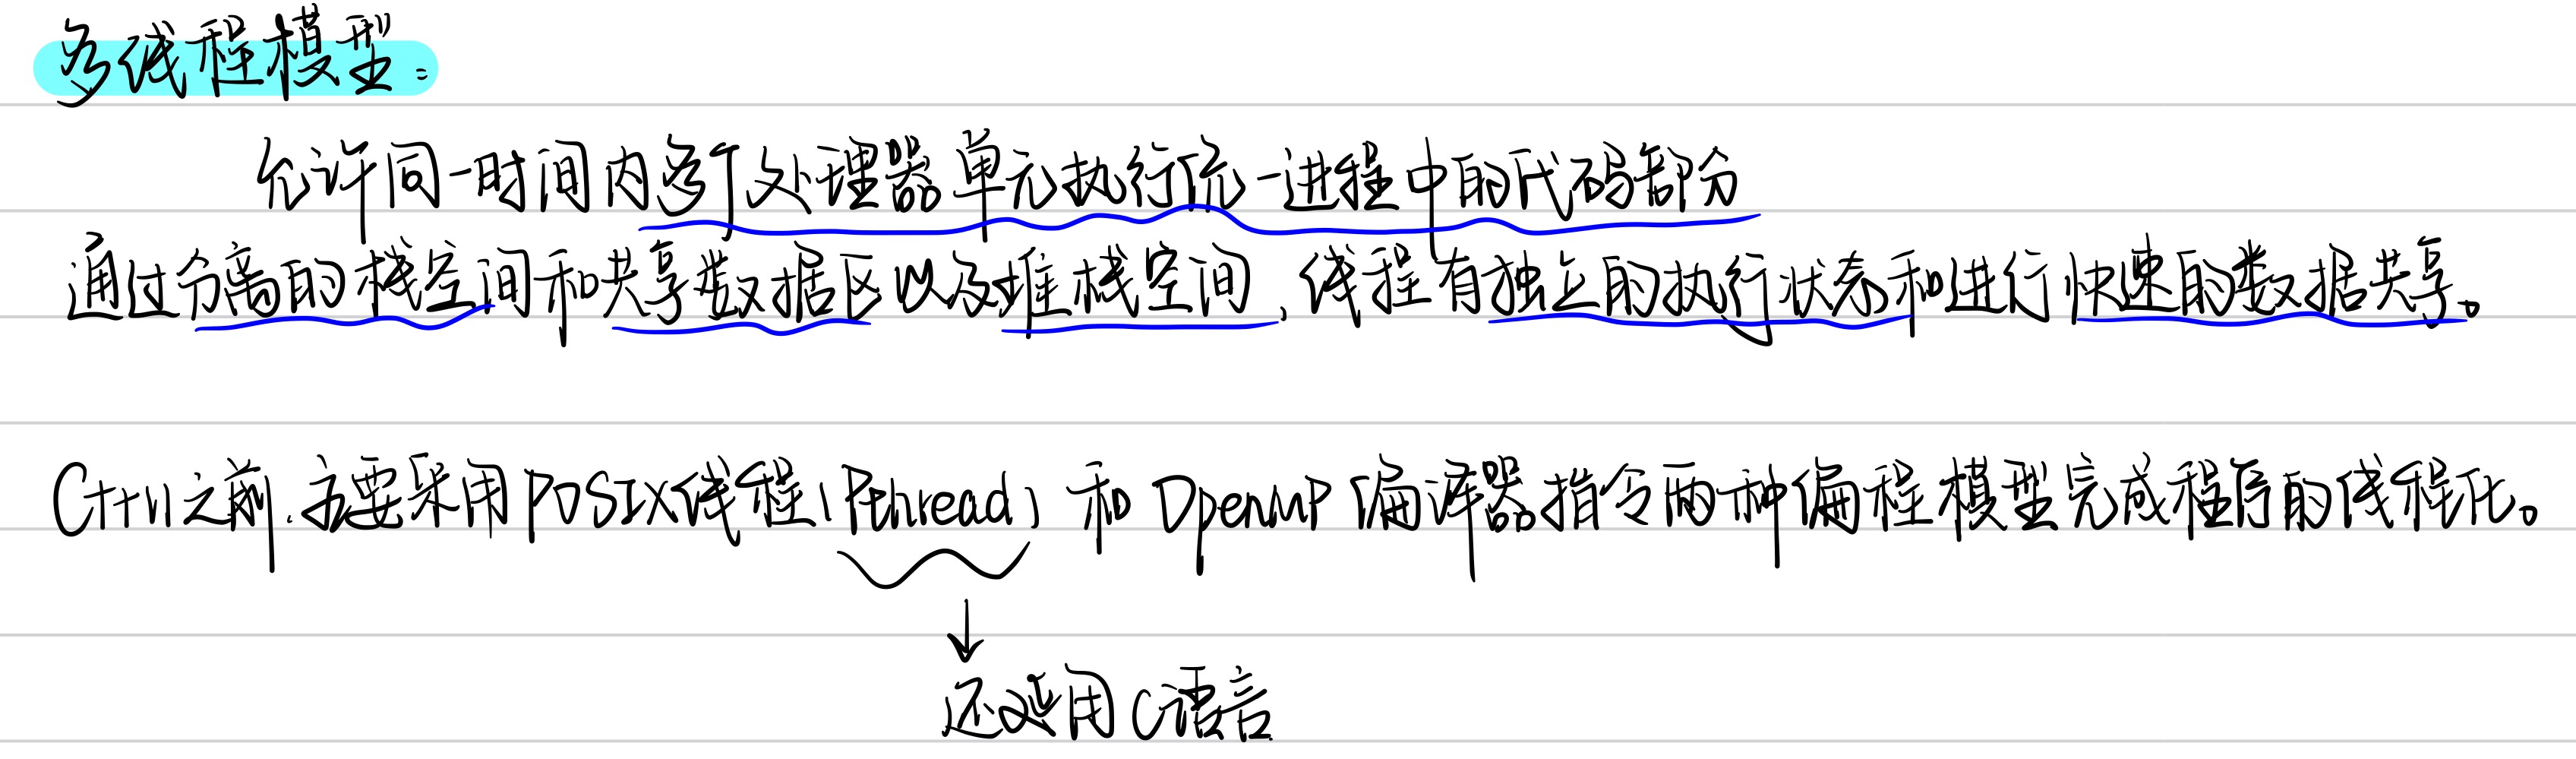 多线程模型：
允许同一时间内多个处理器单元执行统一进程中的代码部分
通过分离的栈空间和共享数据区以及堆栈空间、线程有独立的执行状态和进行快速的数据共享。
C++11之前，主要采用POSIX线程(Pthread)和OpenMP编译器指令两种编程模型完成程序的线程化。
还延用C语言